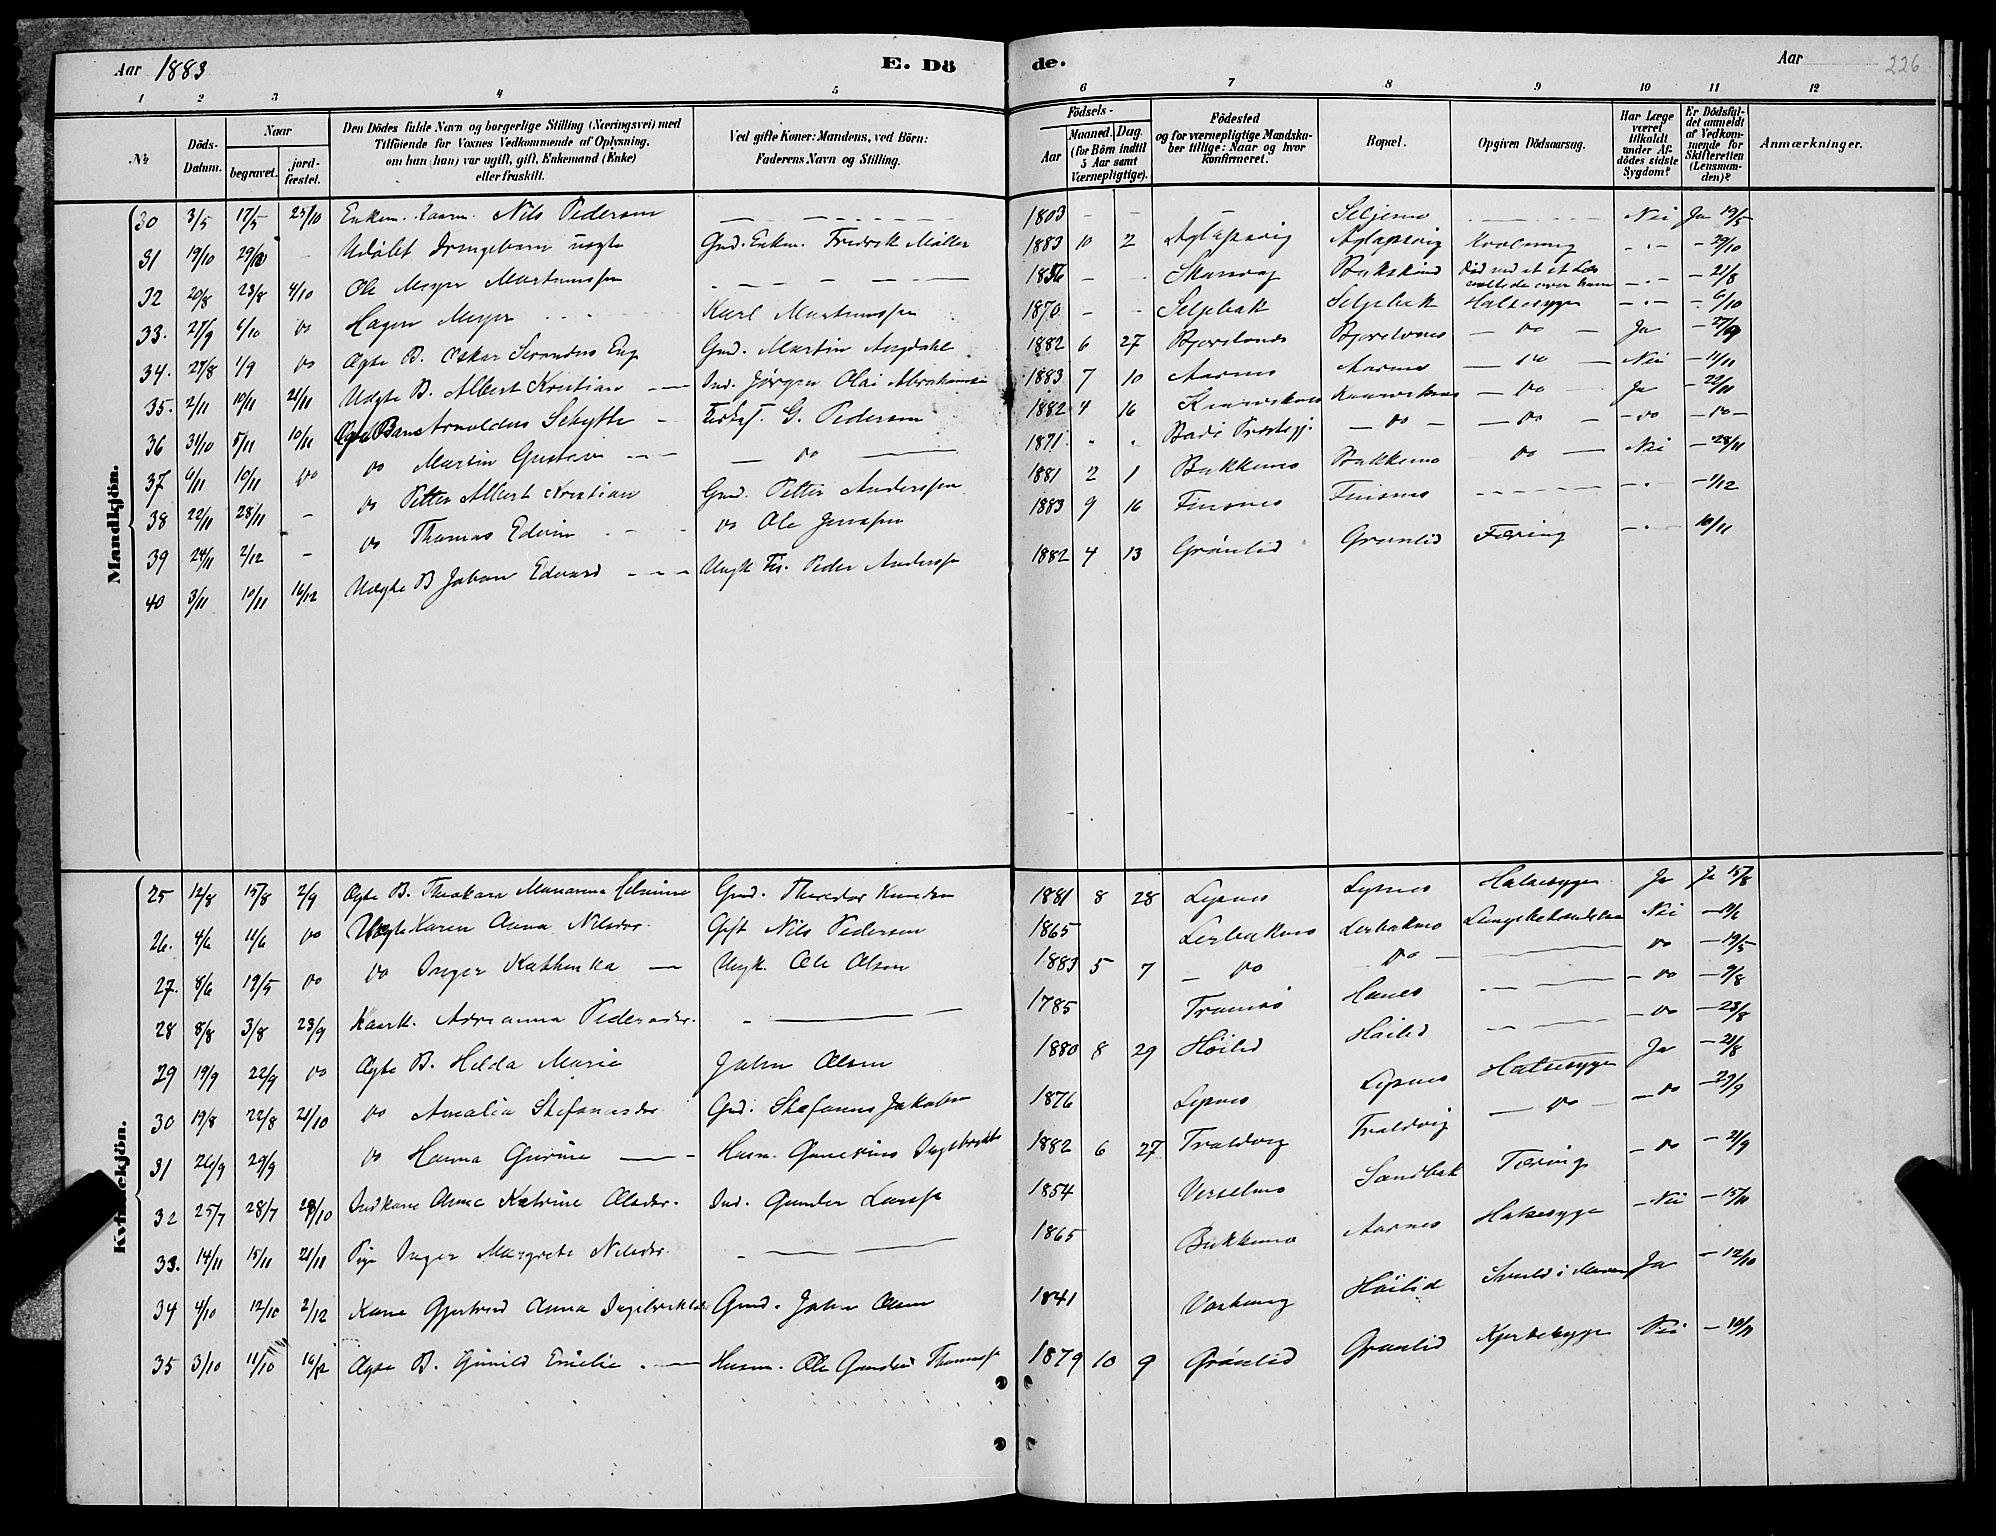 Aar 1883 E. Dö de. Aar 226
1 2 3 4 5 6 7 8 9 10 11 12
№ Döds-Datum. Naar begravet. jordfæstet. Den Dödes fulde Navn og borgerlige Stilling (Næringsvei) med Tilföiende for Voxnes Vedkommende af Oplysning, om han (hun) var ugift, gift, Enkemand (Enke) eller fraskilt. Ved gifte Koner: Mandens, ved Börn: Faderens Navn og Stilling. Födsels- Aar Maaned. Dag. (for Börn indtil 5 Aar samt Værnepligtige). Födested og for værnepligtige Mandskaber tillige: Naar og hvor konfirmeret. Bopæl. Opgiven Dödsaarsag. Har Læge været tilkaldt under Afdödes sidste Sygdom? Er Dödsfaldet anmeldt af Vedkommende for Skifteretten (Lensmanden)? Anmærkninger.
Mandkjön.
30 3/5 17/5 Enkem. Nils Pedersen — 1803 - - — Seljemo — Nei Ja 19/5
31 19/10 29/10 - Udöbt Drengebarn uægte Gmd. Enkm. Fredrik Møller 1883 10 2 Aglapsvig Aglapsvig Kvælning - - - 29/10
32 20/8 23/8 4/10 Ole Meyer Martinussen — 1856 - - Skarsvag - - - 21/8
33. 27/9 6/10 do Hagen Meyer Karl Martinussen 1870 - - Seljebak Seljebak Halsesyge - - - 6/10
34. 27/8 1/9 do Ægte B. Oskar Gmd. Martin Angdahl 1882 6 27 Bjorelvnes Bjorelvnes — do — Ja - 27/9
35. 2/11 10/11 21/11 Uægte B. Albert Kristian — Ind. Jørgen Olai Abrahamsen 1883 7 10 Aarnes Aarnes — do — Nei - 11/11
36 31/10 5/11 10/11 Ægte Barn Arnoldus Schytte - G. Pedersen 1882 4 16 — do Ja - 22/11
37 6/11 10/11 do do Martin Gustav — — do — 1871 " " Badø Præstegj. — do — — do — - do - - do -
38 22/11 28/11 - do Petter Albert Kristian Gmd. Petter Anderssen 1881 2 1 Bakkemo Bakkemo do — Nei - 28/11
39 24/11 2/12 - do Thomas Edvin do Ole Jenssen 1883 9 16 Finsnes Finsnes — - - 1/12
40 3/11 10/11 16/12 Uægte B Johan Edvard — Ungk. Peder Anderssen 1882 4 13 Grönlid Grønlid Tæring - - 10/11
Kvindekjön.
25 12/8 15/8 2/9 Ægte B. Gmd. Theodor Knudsen 1881 8 28 Lysnes Lysnes Halsesyge Ja Ja 15/8
26. 4/6 11/6 do Karen Anna Nilsdr. Gift Nils Pedersen 1865 Lerbakmo Lerbakmo Nei - 11/6
27. 8/6 19/5 do do Inger Kathinka — Ungk. Ole Olsen 1883 5 7 — do do — — do - 19/5
28 8/8 3/8 23/9 Adrianna Pedersdr. — 1785 Tromsö — - do - 9/8
29 19/9 22/9 do Ægte B. Helda Marie John Olsen 1880 8 29 Höilid Höilid — - do - 23/8
30 19/8 22/8 21/10 do Amalia Stefanusdr. Gmd. Stefanus Jakobsen 1876 Lysnes Lysnes Halsesyge Ja - 21/8
31 26/9 29/9 do Hanna Gurine — Husm. Ingebrigts 1882 6 27 Traldvig Traldvig — do — - do - 29/9
32 25/7 28/7 28/10 Anne Katrine Olsdr. Ind. Gunder Larssen 1854 Sandbak Tæring - do - 21/9
33. 14/11 15/11 21/11 Pige Inger Margrete Nilsdr. — 1865 Bakkemo Aarnes Halsesyge - Nei - 15/11
34 4/10 12/10 2/12 Kone Gjertrud Anna Ingebrigtsdr. Gmd. John Olsen 1841 Höilid Ja - 12/10
35 3/10 11/10 16/12 Ægte B. Gunild Emilie — Husm. Ole Thomassen 1879 10 9 Grönlid Grønlid Nei - 10/11